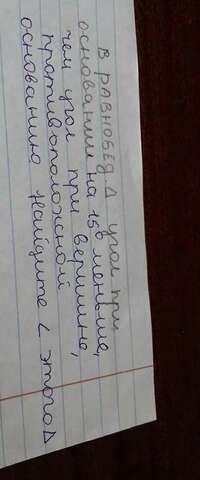 В РАВНОБЕД. Δ угол при
основании на 15° меньше,
чем угол при вершине,
противоположной
основанию. Найдите < этого Δ